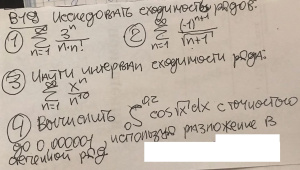 В-18 Исследовать сходимость рядов:
① ∑_{n=1}^{∞} 3^n / (n·n!) ② ∑_{n=1}^{∞} (-1)^{n+1} / √(n+1)
③ Найти интервал сходимости ряда:
∑_{n=1}^{∞} x^n / n^{10}
④ Вычислить ∫_0^{0,2} cos√x dx с точностью
до 0,000001, используя разложение в
степенной ряд